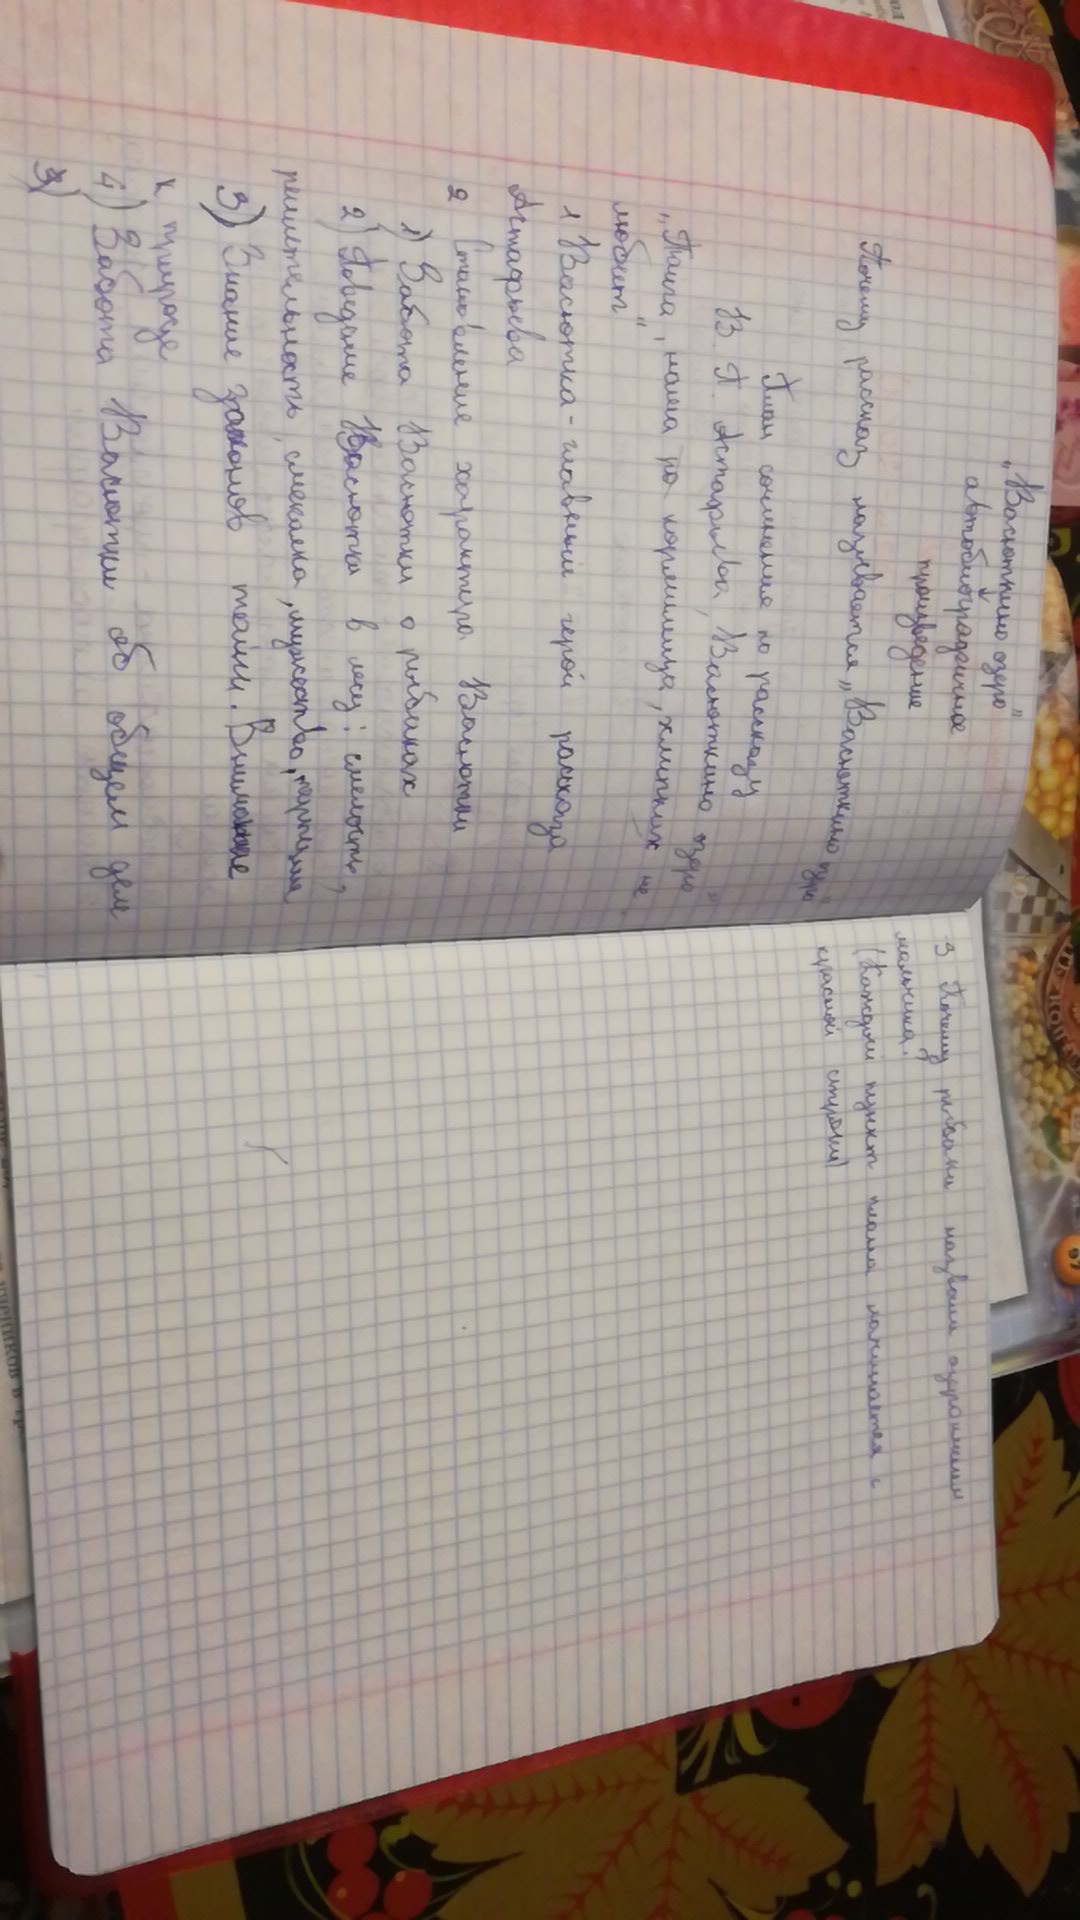 „Васюткино озеро"
автобиографичное
произведение
Почему рассказ называется „Васюткино озеро"
План сочинения по рассказу
В. П. Астафьева „Васюткино озеро"
„Тайга, наша кормилица, хлипких не
любит"
1 Васютка - главный герой рассказа
Астафьева
2 Становление характера Васютки
1) Забота Васютки о рыбаках
2) Поведение Васютки в лесу: смелость,
решительность, смекалка, мужество, терпение
3) Знание законов тайги. Внимание
к природе
4) Забота Васютки об общем деле
3)
3 Почему рыбаки назвали озеро именем
мальчика?
(Каждый пункт плана начинается с
красной строки)
ников в